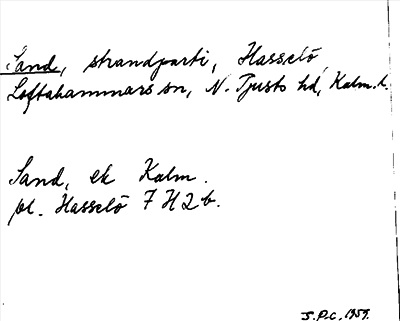 Sand, strandparti, Hasselö,
Loftahammars sn, N. Tjusts hd, Kalm. l.
Sand, ek Kalm.
bl. Hasselö 7 H 2 b.
J.P-c, 1959.